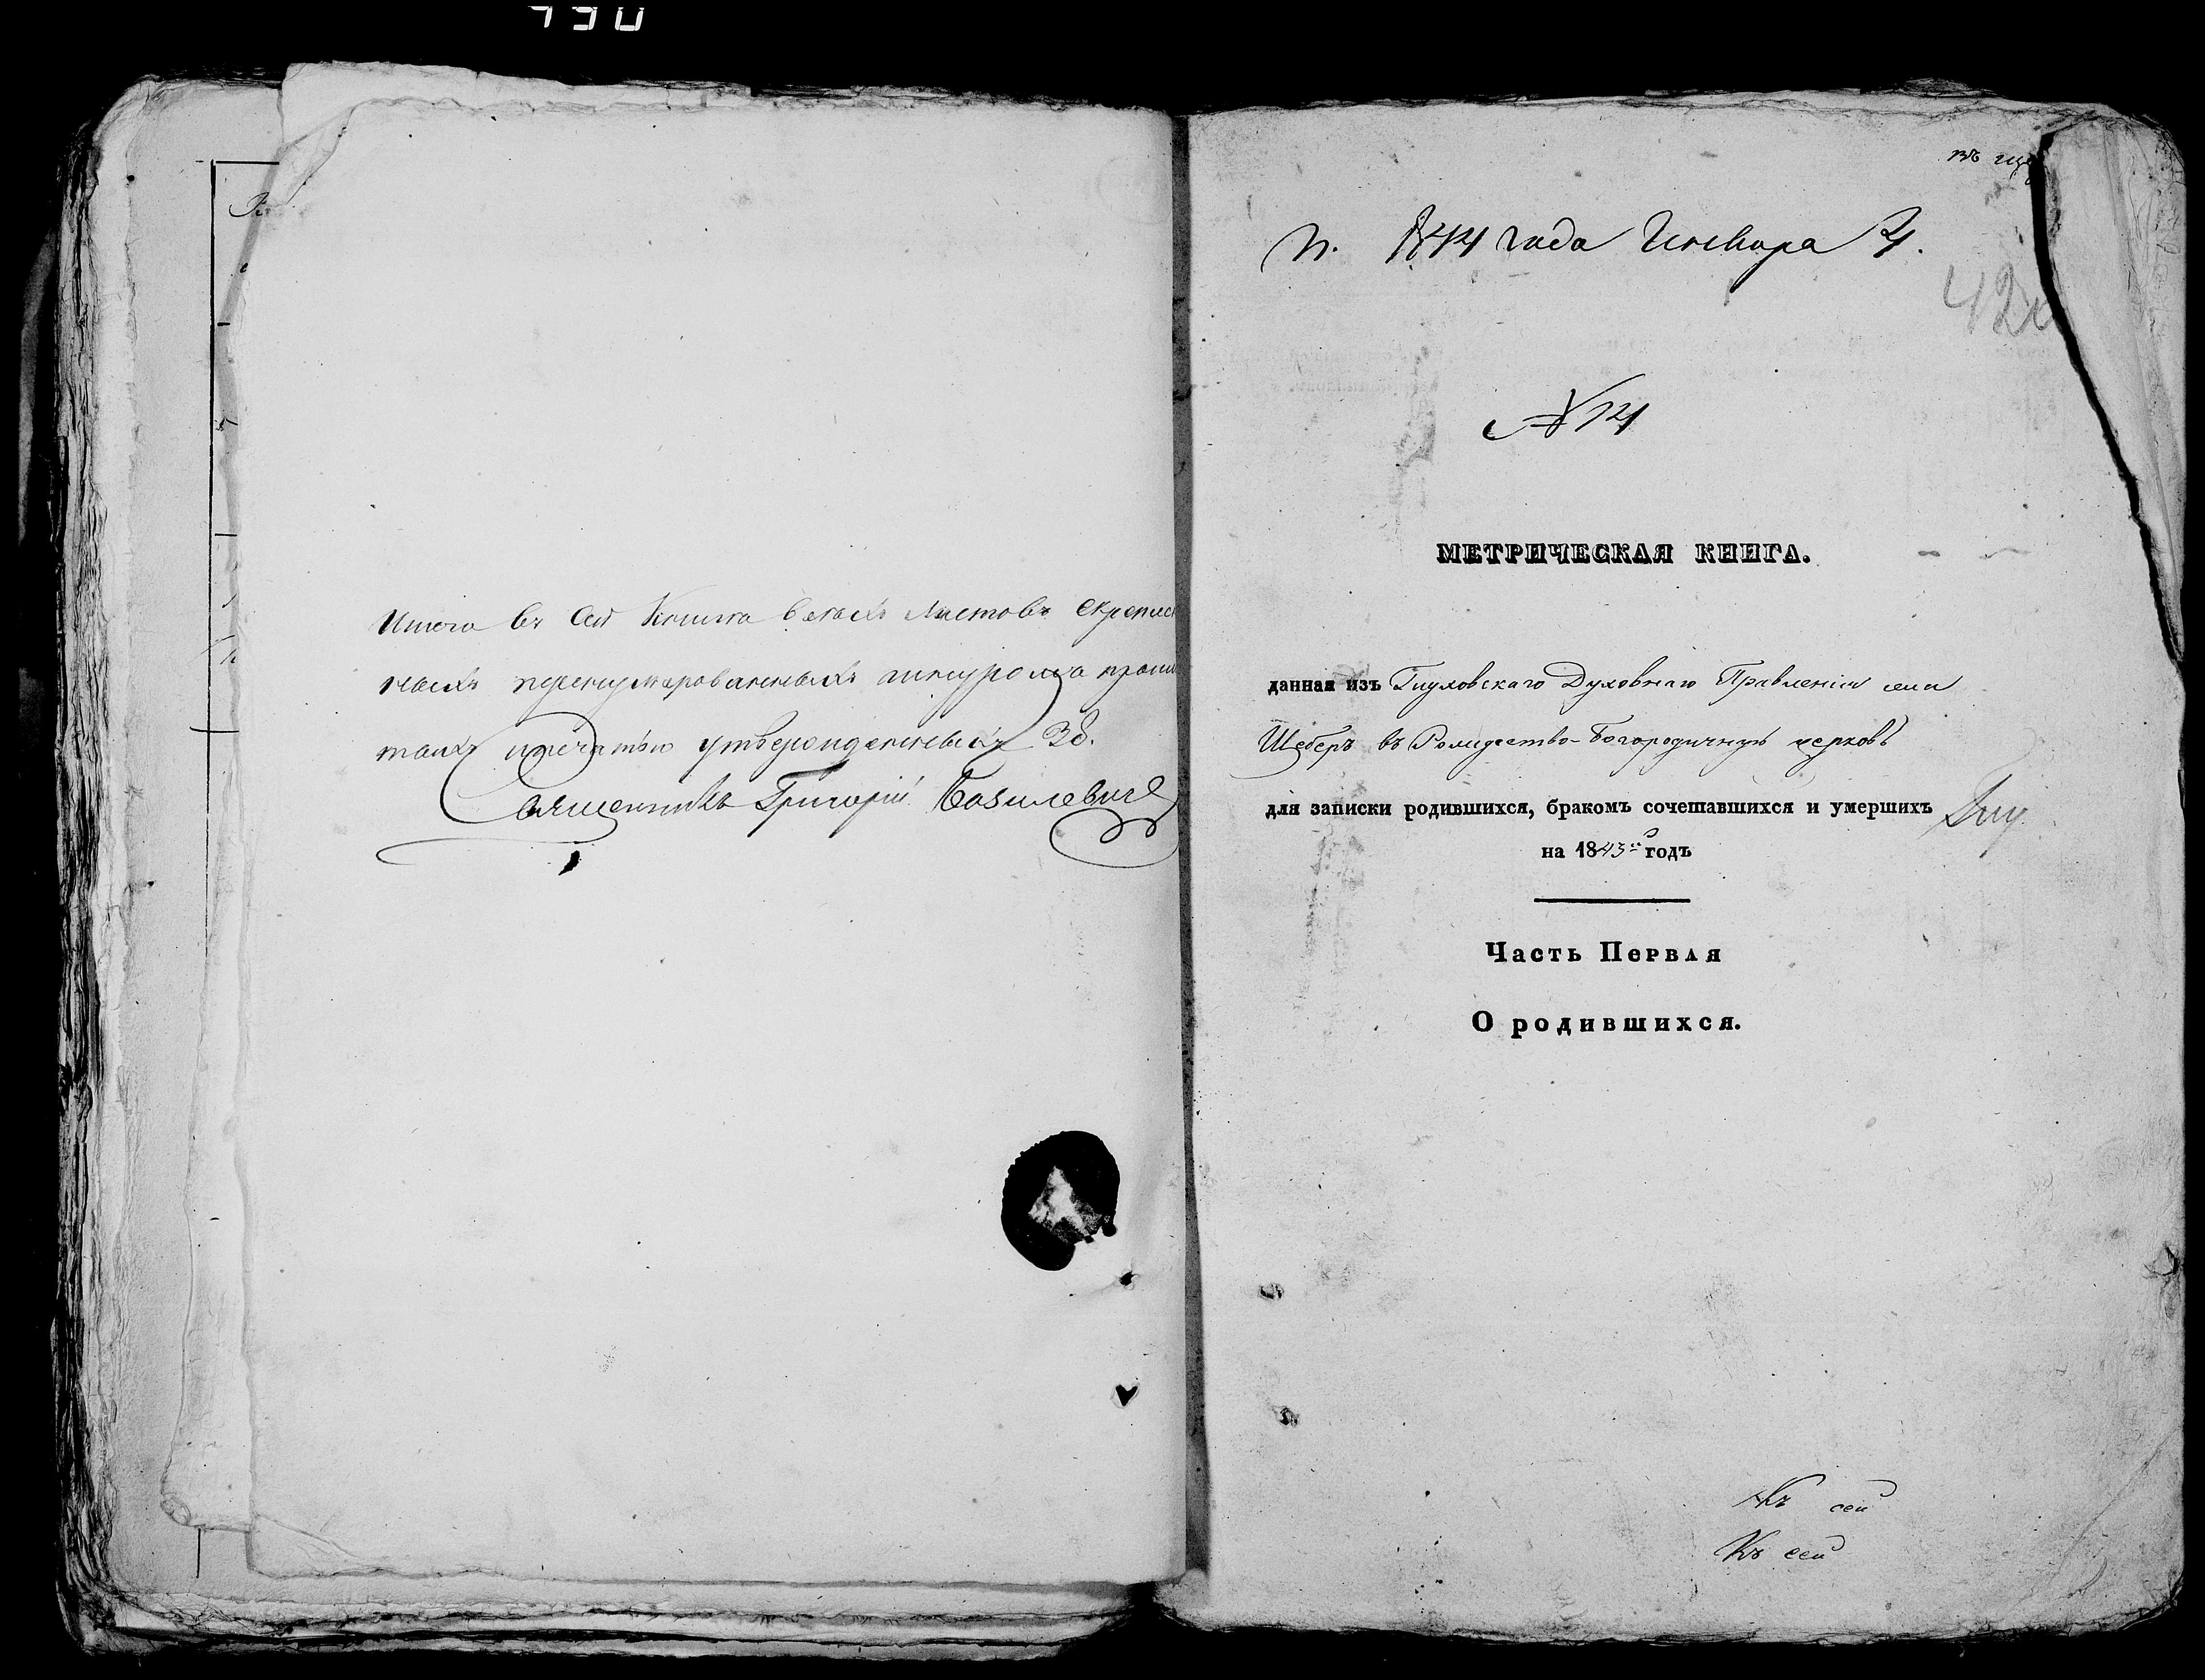 Итого въ сей Книгѣ бѣлыхъ листовъ скреплен
ныхъ перенумерованныхъ шнуромъ прошну
тыхъ и печатью утвержденныхъ 38.
Священникъ Григорій Базилевичъ
въ
П. 1844 года Генваря 4.
42
N 14
МЕТРИЧЕСКАЯ КНИГА.
данная изъ Глуховскаго Духовнаго Правленія села
Щебръ въ Рождество-Богородичную церковь
для записки родившихся, бракомъ сочетавшихся и умершихъ
на 1843й годъ
Часть Первая
О родившихся.
Къ сей
Къ сей